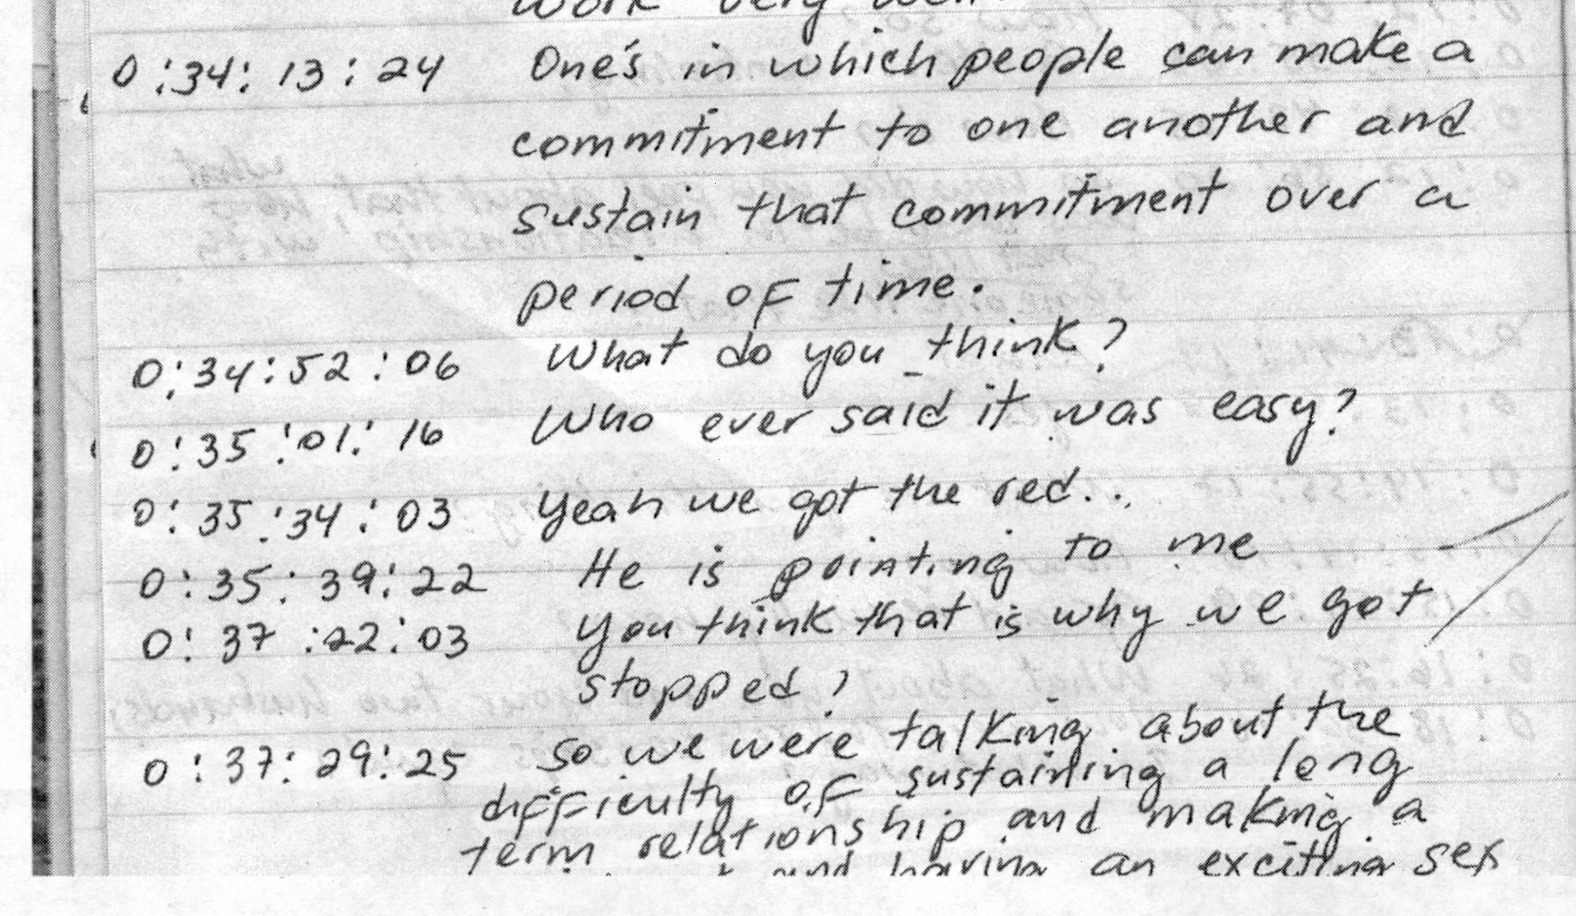 work very well.
0:34:13:24 One's in which people can make a
commitment to one another and
sustain that commitment over a
period of time.
0:34:52:06 What do you think?
0:35:01:16 Who ever said it was easy?
0:35:34:03 Yeah we got the red...
0:35:39:22 He is pointing to me
0:37:22:03 You think that is why we got
stopped?
0:37:29:25 So we were talking about the
difficulty of sustaining a long
term relationship and making a
and having an exciting sex